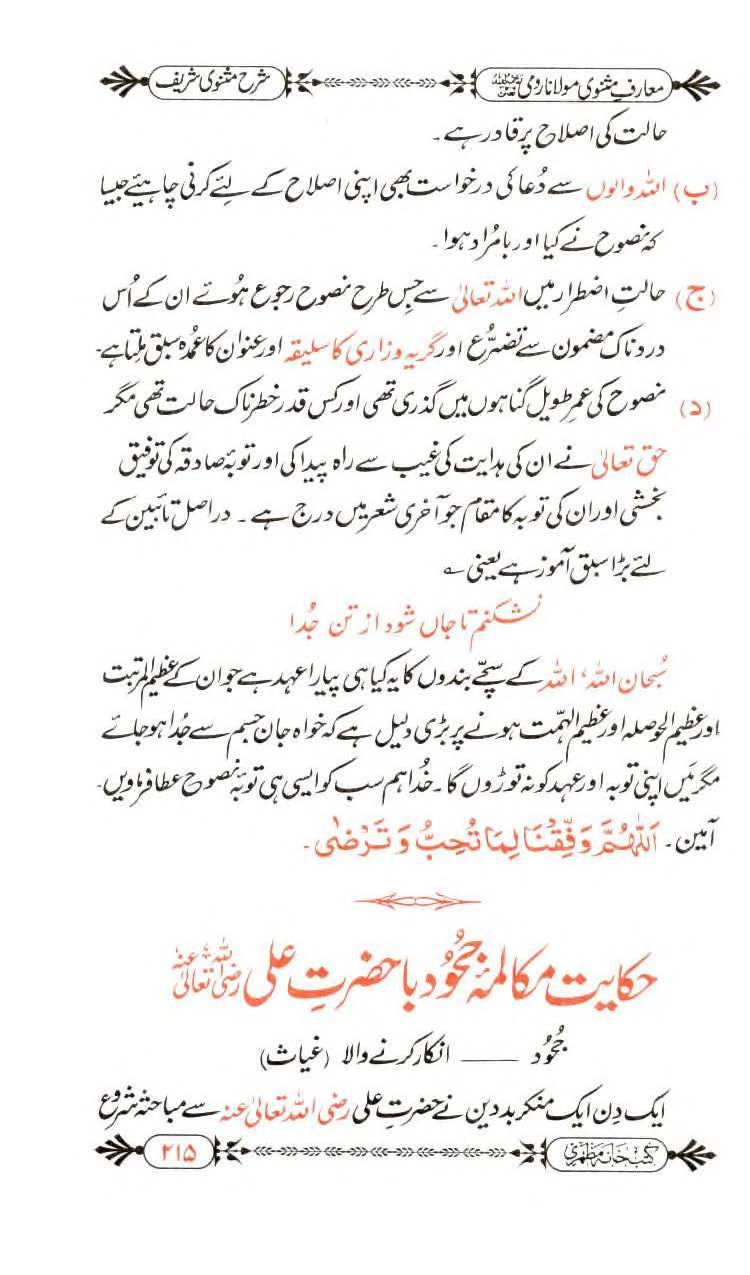 معارفِ مثنوی مولانا رومی رحمۃ اللہ تعالیٰ علیہ
شرح مثنوی شریف
حالت کی اصلاح پر قادر ہے۔
(ب) اللہ والوں سے دُعا کی درخواست بھی اپنی اصلاح کے لئے کرنی چاہیئے جیسا
کہ نصوح نے کیا اور بامُراد ہوا۔
(ج) حالتِ اضطرار میں اللہ تعالیٰ سے جس طرح نصوح رجوع ہُوئے ان کے اُس
دردناک مضمون سے تضرُّع اور گریہ وزاری کا سلیقہ اور عنوان کا عُمدہ سبق ملتا ہے۔
(د) نصوح کی عمرِ طویل گناہوں میں گذری تھی اور کس قدر خطرناک حالت تھی مگر
حق تعالیٰ نے ان کی ہدایت کی غیب سے راہ پیدا کی اور توبۂ صادقہ کی توفیق
بخشی اور ان کی توبہ کا مقام جو آخری شعر میں درج ہے۔ دراصل تائبین کے
لئے بڑا سبق آموز ہے یعنی ؎
نشکنم تا جاں شود از تن جُدا
سُبحان اللہ، اللہ کے سچّے بندوں کا یہ کیا ہی پیارا عہد ہے جو ان کے عظیم المرتبت
اور عظیم الحوصلہ اور عظیم الہمّت ہونے پر بڑی دلیل ہے کہ خواہ جان جسم سے جُدا ہو جائے
مگر مَیں اپنی توبہ اور عہد کو نہ توڑوں گا۔ خُدا ہم سب کو ایسی ہی توبۂ نصوح عطا فرماویں۔
آمین۔ اَللّٰهُمَّ وَفِّقْنَا لِمَا تُحِبُّ وَتَرْضٰى۔
حکایت مکالمۂ جُحُود با حضرتِ علی رضی اللہ تعالیٰ عنہ
جُحُود ــــــ انکار کرنے والا (غیاث)
ایک دِن ایک منکر بددین نے حضرتِ علی رضی اللہ تعالیٰ عنہ سے مباحثہ شروع
کتب خانہ مظہری
۲۱۵